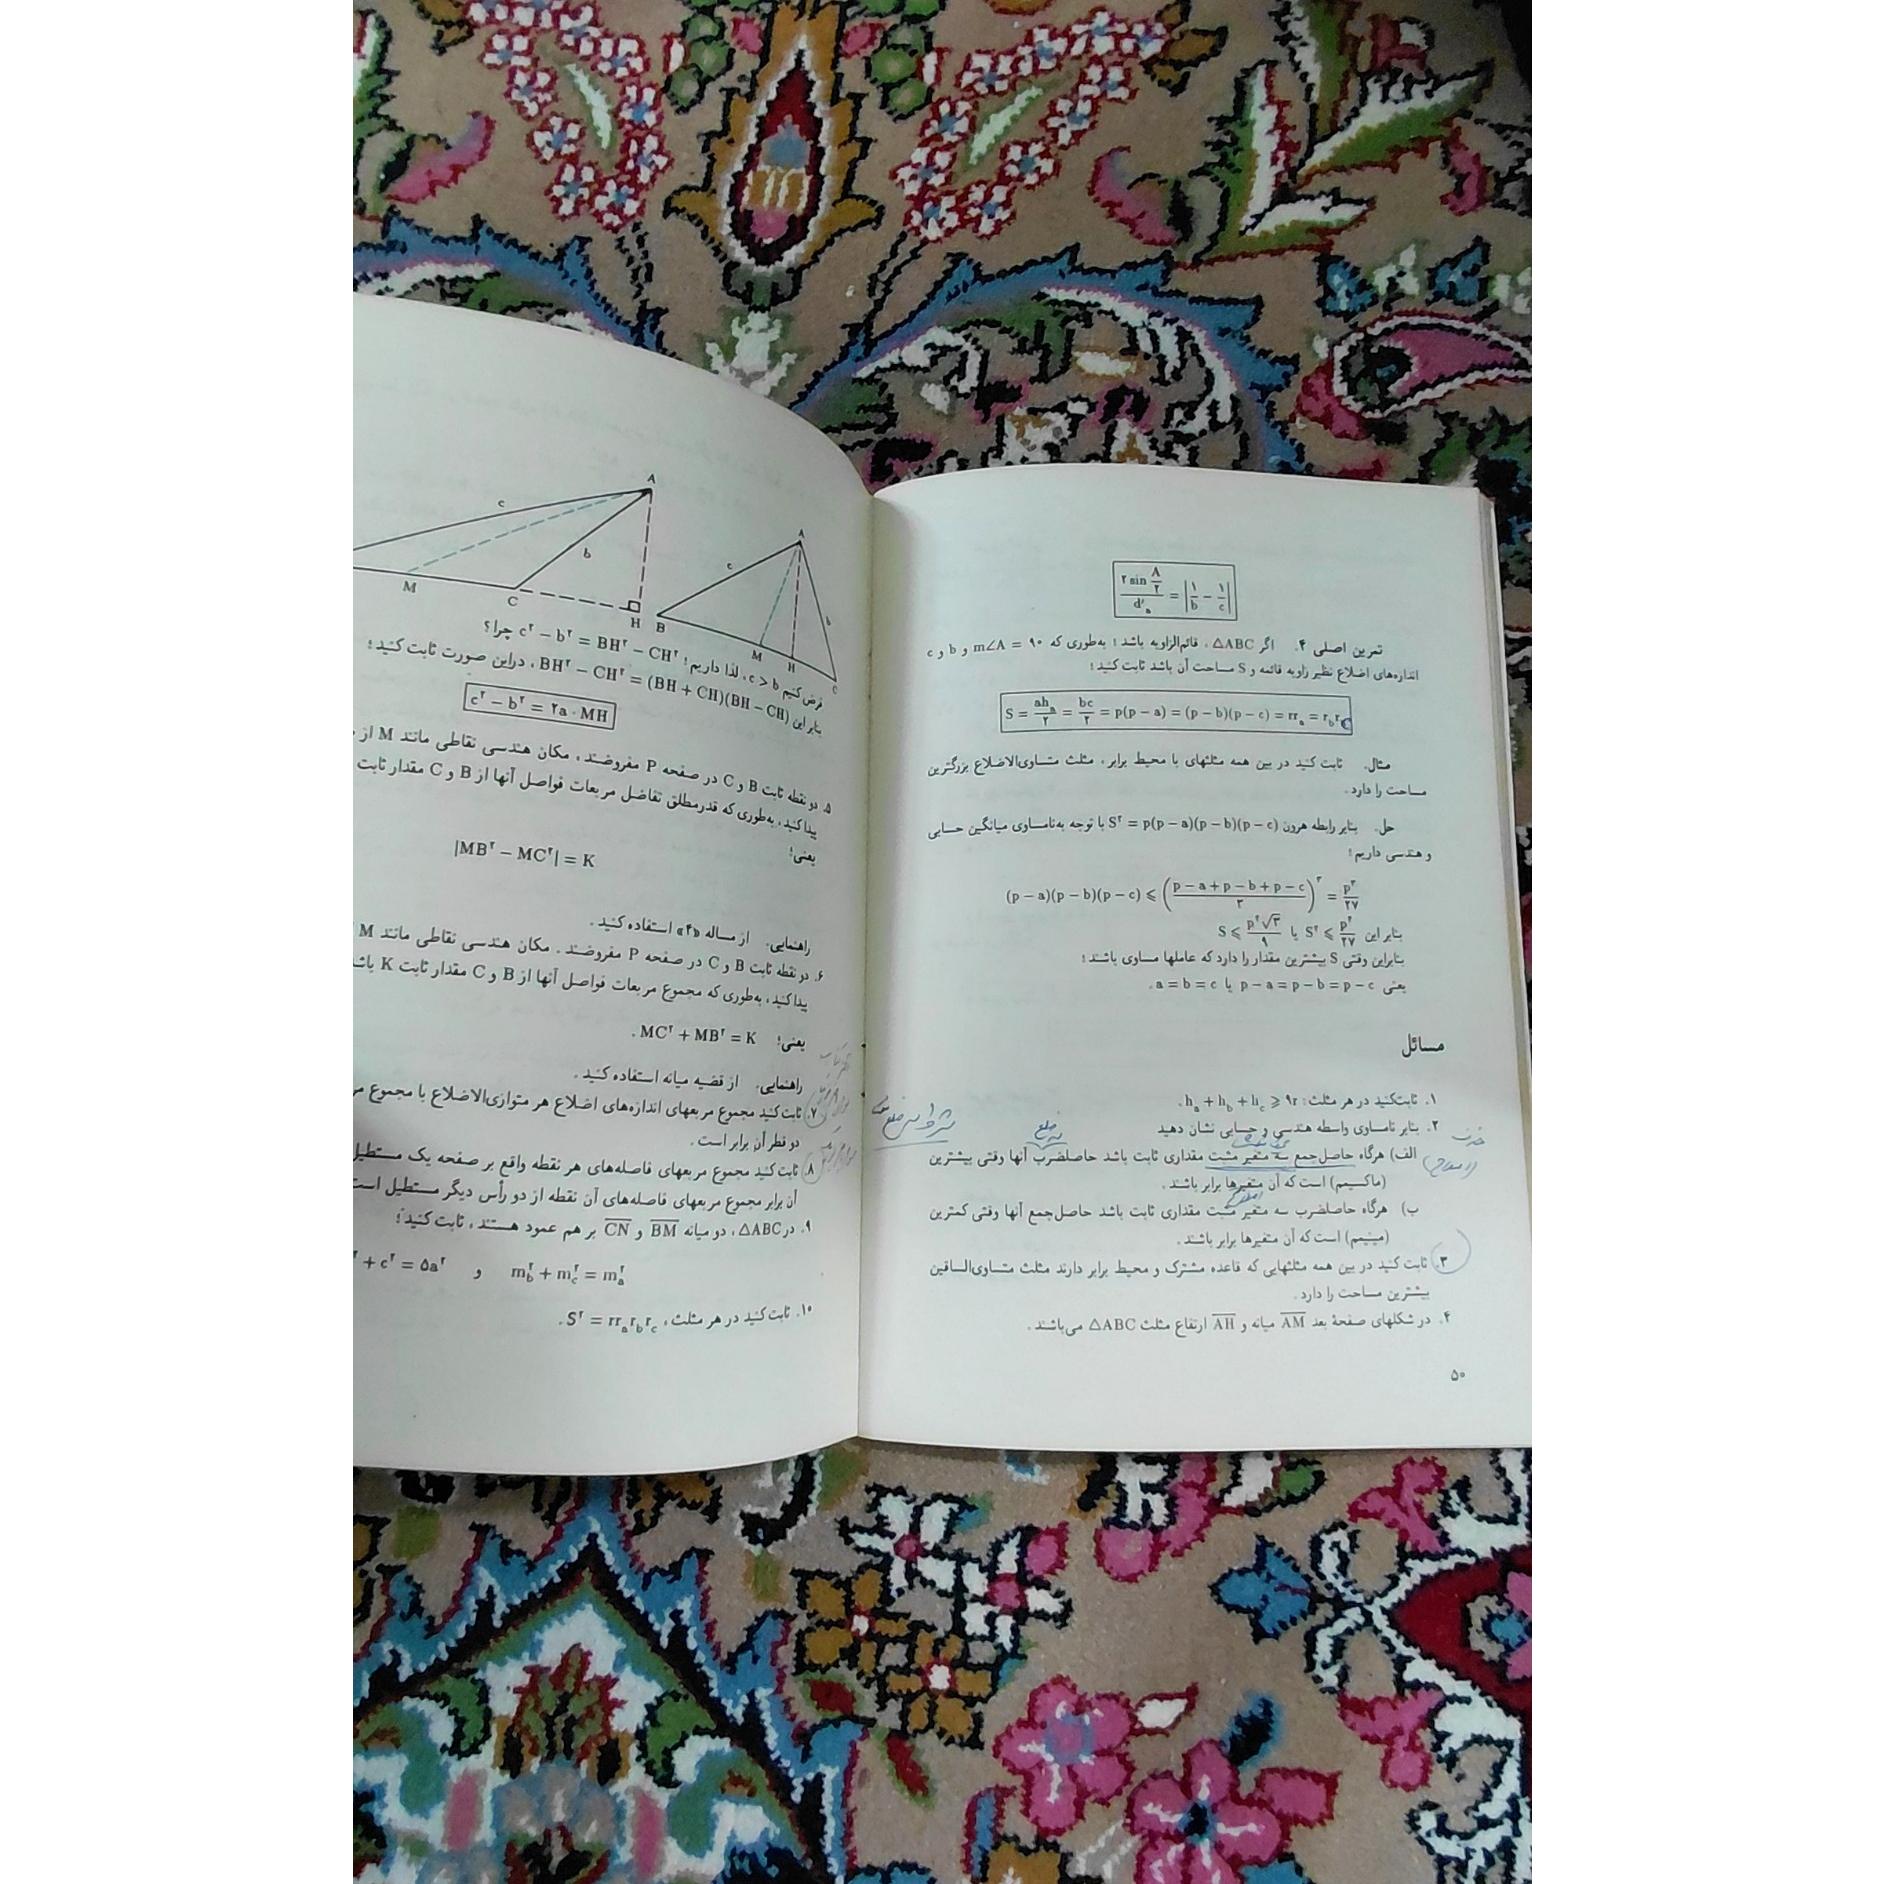 ۲ sin A/۲ / d′ₐ = |۱/b − ۱/c|
تمرین اصلی ۴. اگر △ABC، قائم‌الزاویه باشد؛ به‌طوری که m∠A = ۹۰ و b و c
اندازه‌های اضلاع نظیر زاویه قائمه و S مساحت آن باشد ثابت کنید؛
S = ahₐ/۲ = bc/۲ = p(p − a) = (p − b)(p − c) = rrₐ = r_b r_c
مثال. ثابت کنید در بین همه مثلثهای با محیط برابر، مثلث متساوی‌الاضلاع بزرگترین
مساحت را دارد.
حل. بنابر رابطه هرون S² = p(p − a)(p − b)(p − c) با توجه به‌نامساوی میانگین حسابی
و هندسی داریم؛
(p − a)(p − b)(p − c) ⩽ ((p − a + p − b + p − c)/۳)³ = p³/۲۷
بنابر این S² ⩽ p⁴/۲۷ یا S ⩽ p²√۳/۹
بنابراین وقتی S بیشترین مقدار را دارد که عاملها مساوی باشند؛
یعنی p − a = p − b = p − c یا a = b = c.
مسائل
۱. ثابت‌کنید در هر مثلث: hₐ + h_b + h_c ⩾ ۹r.
۲. بنابر نامساوی واسطه هندسی و حسابی نشان دهید
الف) هرگاه حاصل‌جمع سه متغیر مثبت مقداری ثابت باشد حاصلضرب آنها وقتی بیشترین
(ماکسیمم) است که آن متغیرها برابر باشند.
ب) هرگاه حاصلضرب سه متغیر مثبت مقداری ثابت باشد حاصل‌جمع آنها وقتی کمترین
(مینیمم) است که آن متغیرها برابر باشند.
۳. ثابت کنید در بین همه مثلثهایی که قاعده مشترک و محیط برابر دارند مثلث متساوی‌الساقین
بیشترین مساحت را دارد.
۴. در شکلهای صفحهٔ بعد AM میانه و AH ارتفاع مثلث △ABC می‌باشند.
۵۰
A
c
b
M
C
H
A
c
b
B
M
H
C
فرض کنیم c > b، لذا داریم؛ c² − b² = BH² − CH² چرا؟
بنابر این BH² − CH² = (BH + CH)(BH − CH)، دراین صورت ثابت کنید؛
c² − b² = ۲a · MH
۵. دو نقطه ثابت B و C در صفحه P مفروضند، مکان هندسی نقاطی مانند M از
پیدا کنید، به‌طوری که قدرمطلق تفاضل مربعات فواصل آنها از B و C مقدار ثابت
یعنی؛
|MB² − MC²| = K
راهنمایی. از مساله «۴» استفاده کنید.
۶. دو نقطه ثابت B و C در صفحه P مفروضند. مکان هندسی نقاطی مانند M
پیدا کنید، به‌طوری که مجموع مربعات فواصل آنها از B و C مقدار ثابت K باشد
یعنی؛ MC² + MB² = K.
راهنمایی. از قضیه میانه استفاده کنید.
۷. ثابت کنید مجموع مربعهای اندازه‌های اضلاع هر متوازی‌الاضلاع با مجموع
دو قطر آن برابر است.
۸. ثابت کنید مجموع مربعهای فاصله‌های هر نقطه واقع بر صفحه یک مستطیل
آن برابر مجموع مربعهای فاصله‌های آن نقطه از دو رأس دیگر مستطیل است
۹. در △ABC، دو میانه BM و CN بر هم عمود هستند، ثابت کنید؛
m_b² + m_c² = mₐ² و + c² = ۵a²
۱۰. ثابت کنید در هر مثلث، S² = rrₐr_br_c.